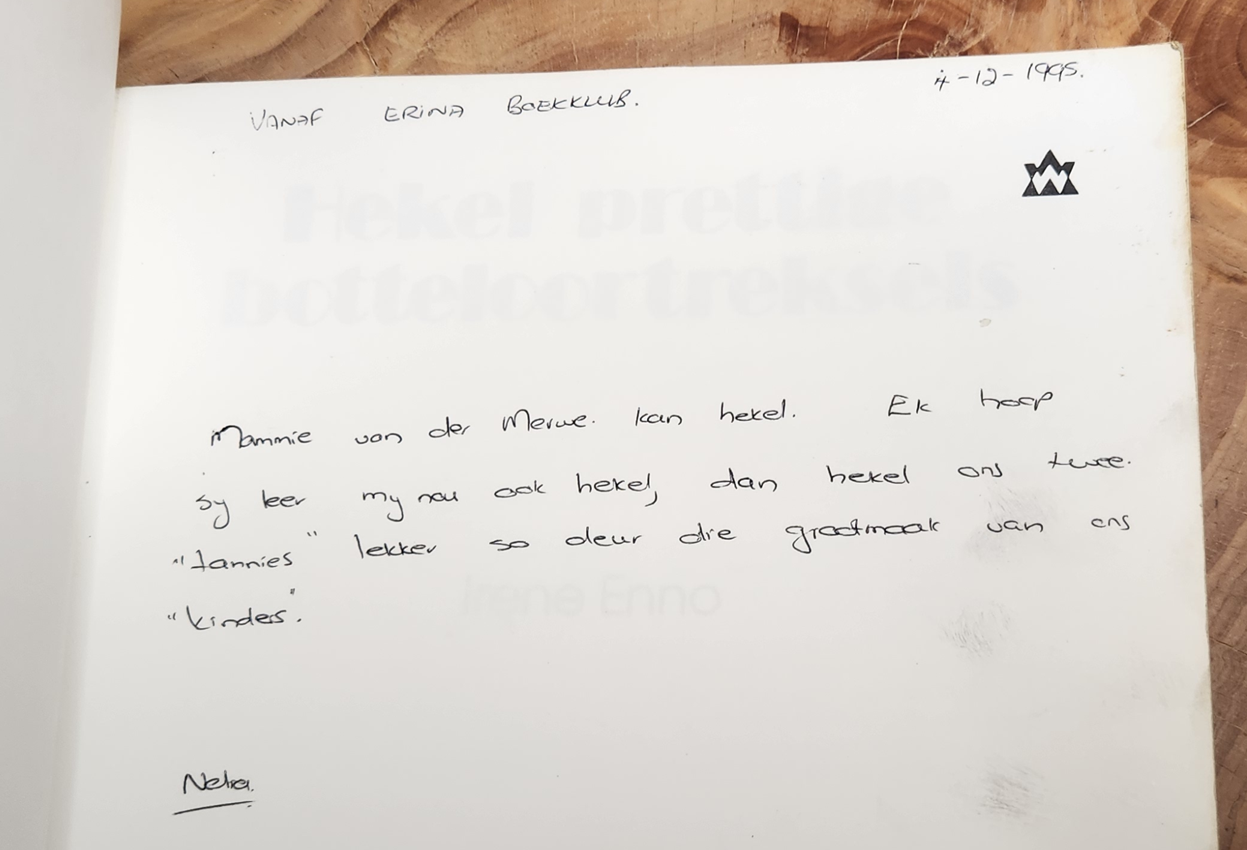 4-12-1995.
VANAF ERINA BOEKKLUB.
Hekel prettige
botteloortreksels
Mammie van der Merwe. kan hekel. Ek hoop
sy leer my nou ook hekel, dan hekel ons twee.
"tannies" lekker so deur die grootmaak van ons
"kinders".
Irene Enno